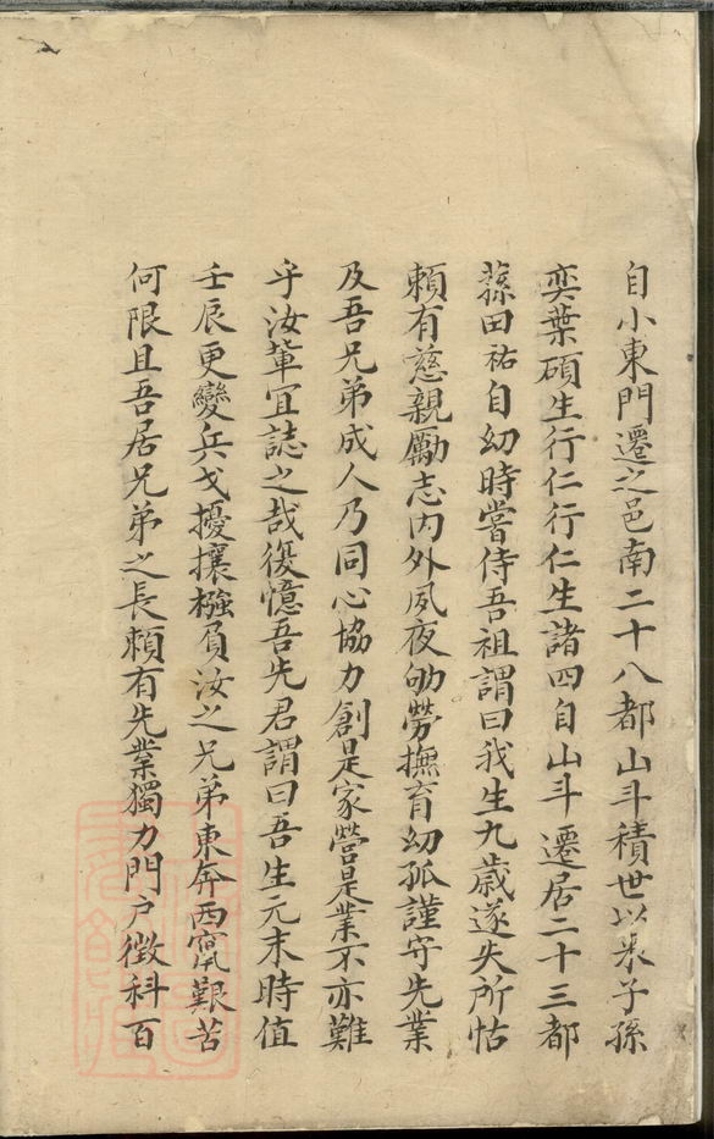 自小東門遷之邑南二十八都山斗積世以来子孫
奕葉碩生行仁行仁生諸四自山斗遷居二十三都
蓀田祐自幼時嘗侍吾祖謂曰我生九歲遂失所怙
頼有慈親勵志内外夙夜劬勞撫育幼孤謹守先業
及吾兄弟成人乃同心協力創是家營是業不亦難
乎汝軰宜誌之哉復憶吾先君謂曰吾生元末時值
壬辰更變兵戈擾攘襁負汝之兄弟東奔西竄艱苦
何限且吾居兄弟之長頼有先業獨力門户徴科百